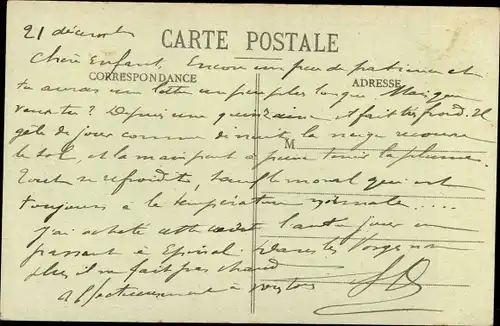 21 décembre
CARTE POSTALE
Chère Enfant, Encore un peu de patience et
CORRESPONDANCE
ADRESSE
tu auras une lettre un peu plus longue. Mais que
veux-tu ? Depuis une quinzaine il fait très froid. Il
gèle de jour comme de nuit, la neige recouvre
M
le sol, et la main peut à peine tenir la plume.
Tout se refroidit, sauf le moral qui est
toujours à la température normale.....
J'ai acheté cette carte l'autre jour en
passant à Epinal. Dans les Vosges non
plus il ne fait pas chaud
Affectueusement à vous tous